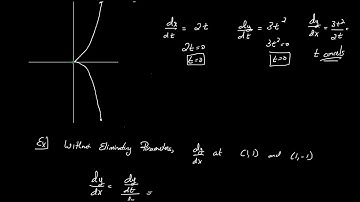 dx/dt = 2t dy/dt = 3t² dy/dx = 3t²/2t
2t=0 3t²=0 t cancels
t=0 t=0
Ex] Without Eliminating Parameter, dy/dx at (1,1) and (1,-1)
dy/dx = dy/dt =